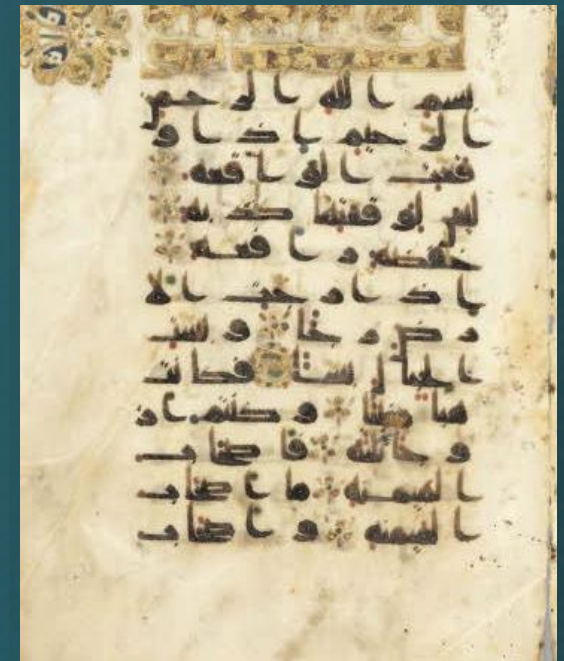 بسم الله الرحمن
الرحيم اذا و
قعت الواقعة
ليس لوقعتها كذبة
خفضة رافعة
اذا رجت الا
رض رجا وبست
الجبال بسا فكانت
هبا منبثا وكنتم از
وجا ثلثة فاصحاب
الميمنة ما اصحاب
الميمنة واصحاب